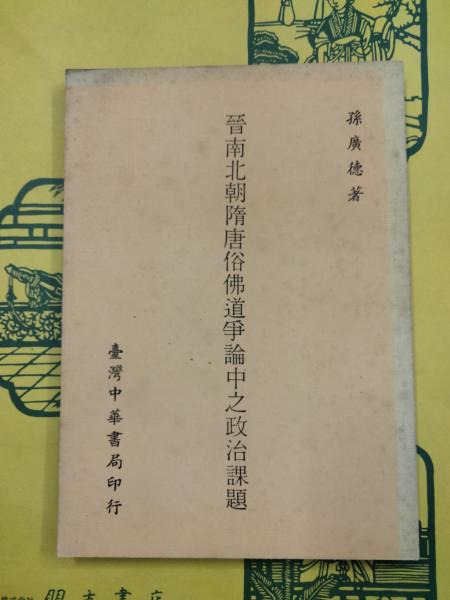 孫廣德著
晉南北朝隋唐俗佛道爭論中之政治課題
臺灣中華書局印行
株式会社
書店